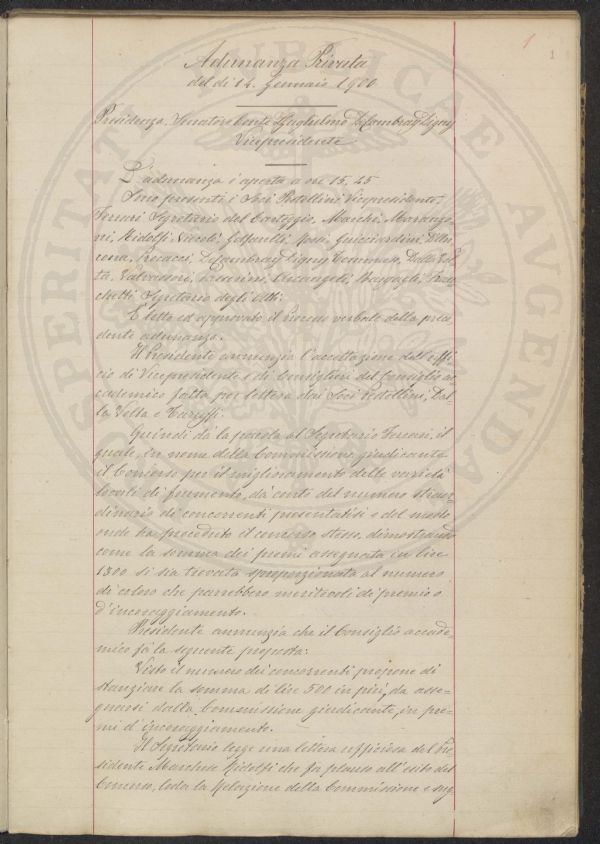 1 1
Adunanza Privata
del dì 14 Gennaio 1900
Presidenza Senatore Conte Guglielmo DeCambray Digny
Vicepresidente
L'adunanza è aperta a ore 15.45
Sono presenti i Soci Pestellini Vicepresidente,
Ferrari Segretario del Carteggio, Marchi, Marango-
ni, Ridolfi Niccolò, Guicciardini, D'An-
cona, DeCambray Digny Tommaso, Dalla Vol-
ta, Valvassori, Passerini, Arcangeli, Franc-
chetti Segretario degli Atti.
È letto ed approvato il Processo verbale della prece-
dente adunanza.
Il Presidente annunzia l'accettazione dell'uffi-
cio di Vicepresidente e di Consiglieri del Consiglio ac-
cademico fatta per lettera dai Soci Pestellini, Dal-
la Volta e Caruffi.
Quindi dà la parola al Segretario Ferrari, il
quale, in nome della Commissione giudicante
il Concorso per il miglioramento delle varietà
locali di frumento, dà conto del numero straor-
dinario di concorrenti presentatisi e del modo
onde ha proceduto il concorso stesso, dimostrando
come la somma dei premi assegnata in lire
1300 si sia trovata sproporzionata al numero
di coloro che parrebbero meritevoli di premio o
d'incoraggiamento.
Presidente annunzia che il Consiglio accade-
mico fa la seguente proposta:
Visto il numero dei concorrenti propone di
stanziare la somma di lire 500 in più, da asse-
gnarsi dalla Commissione giudicante, in pre-
mi d'incoraggiamento.
Il Segretario legge una lettera ufficiosa del Pre-
sidente Marchese Ridolfi che fa plauso all'esito del
Concorso, loda la Relazione della Commissione e sug
PROSPERITATI PUBLICAE AUGENDAE